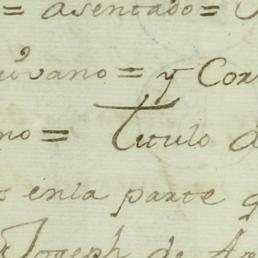 = asentado =
= y Cor
no = Titulo d
s enla parte q
Joseph de